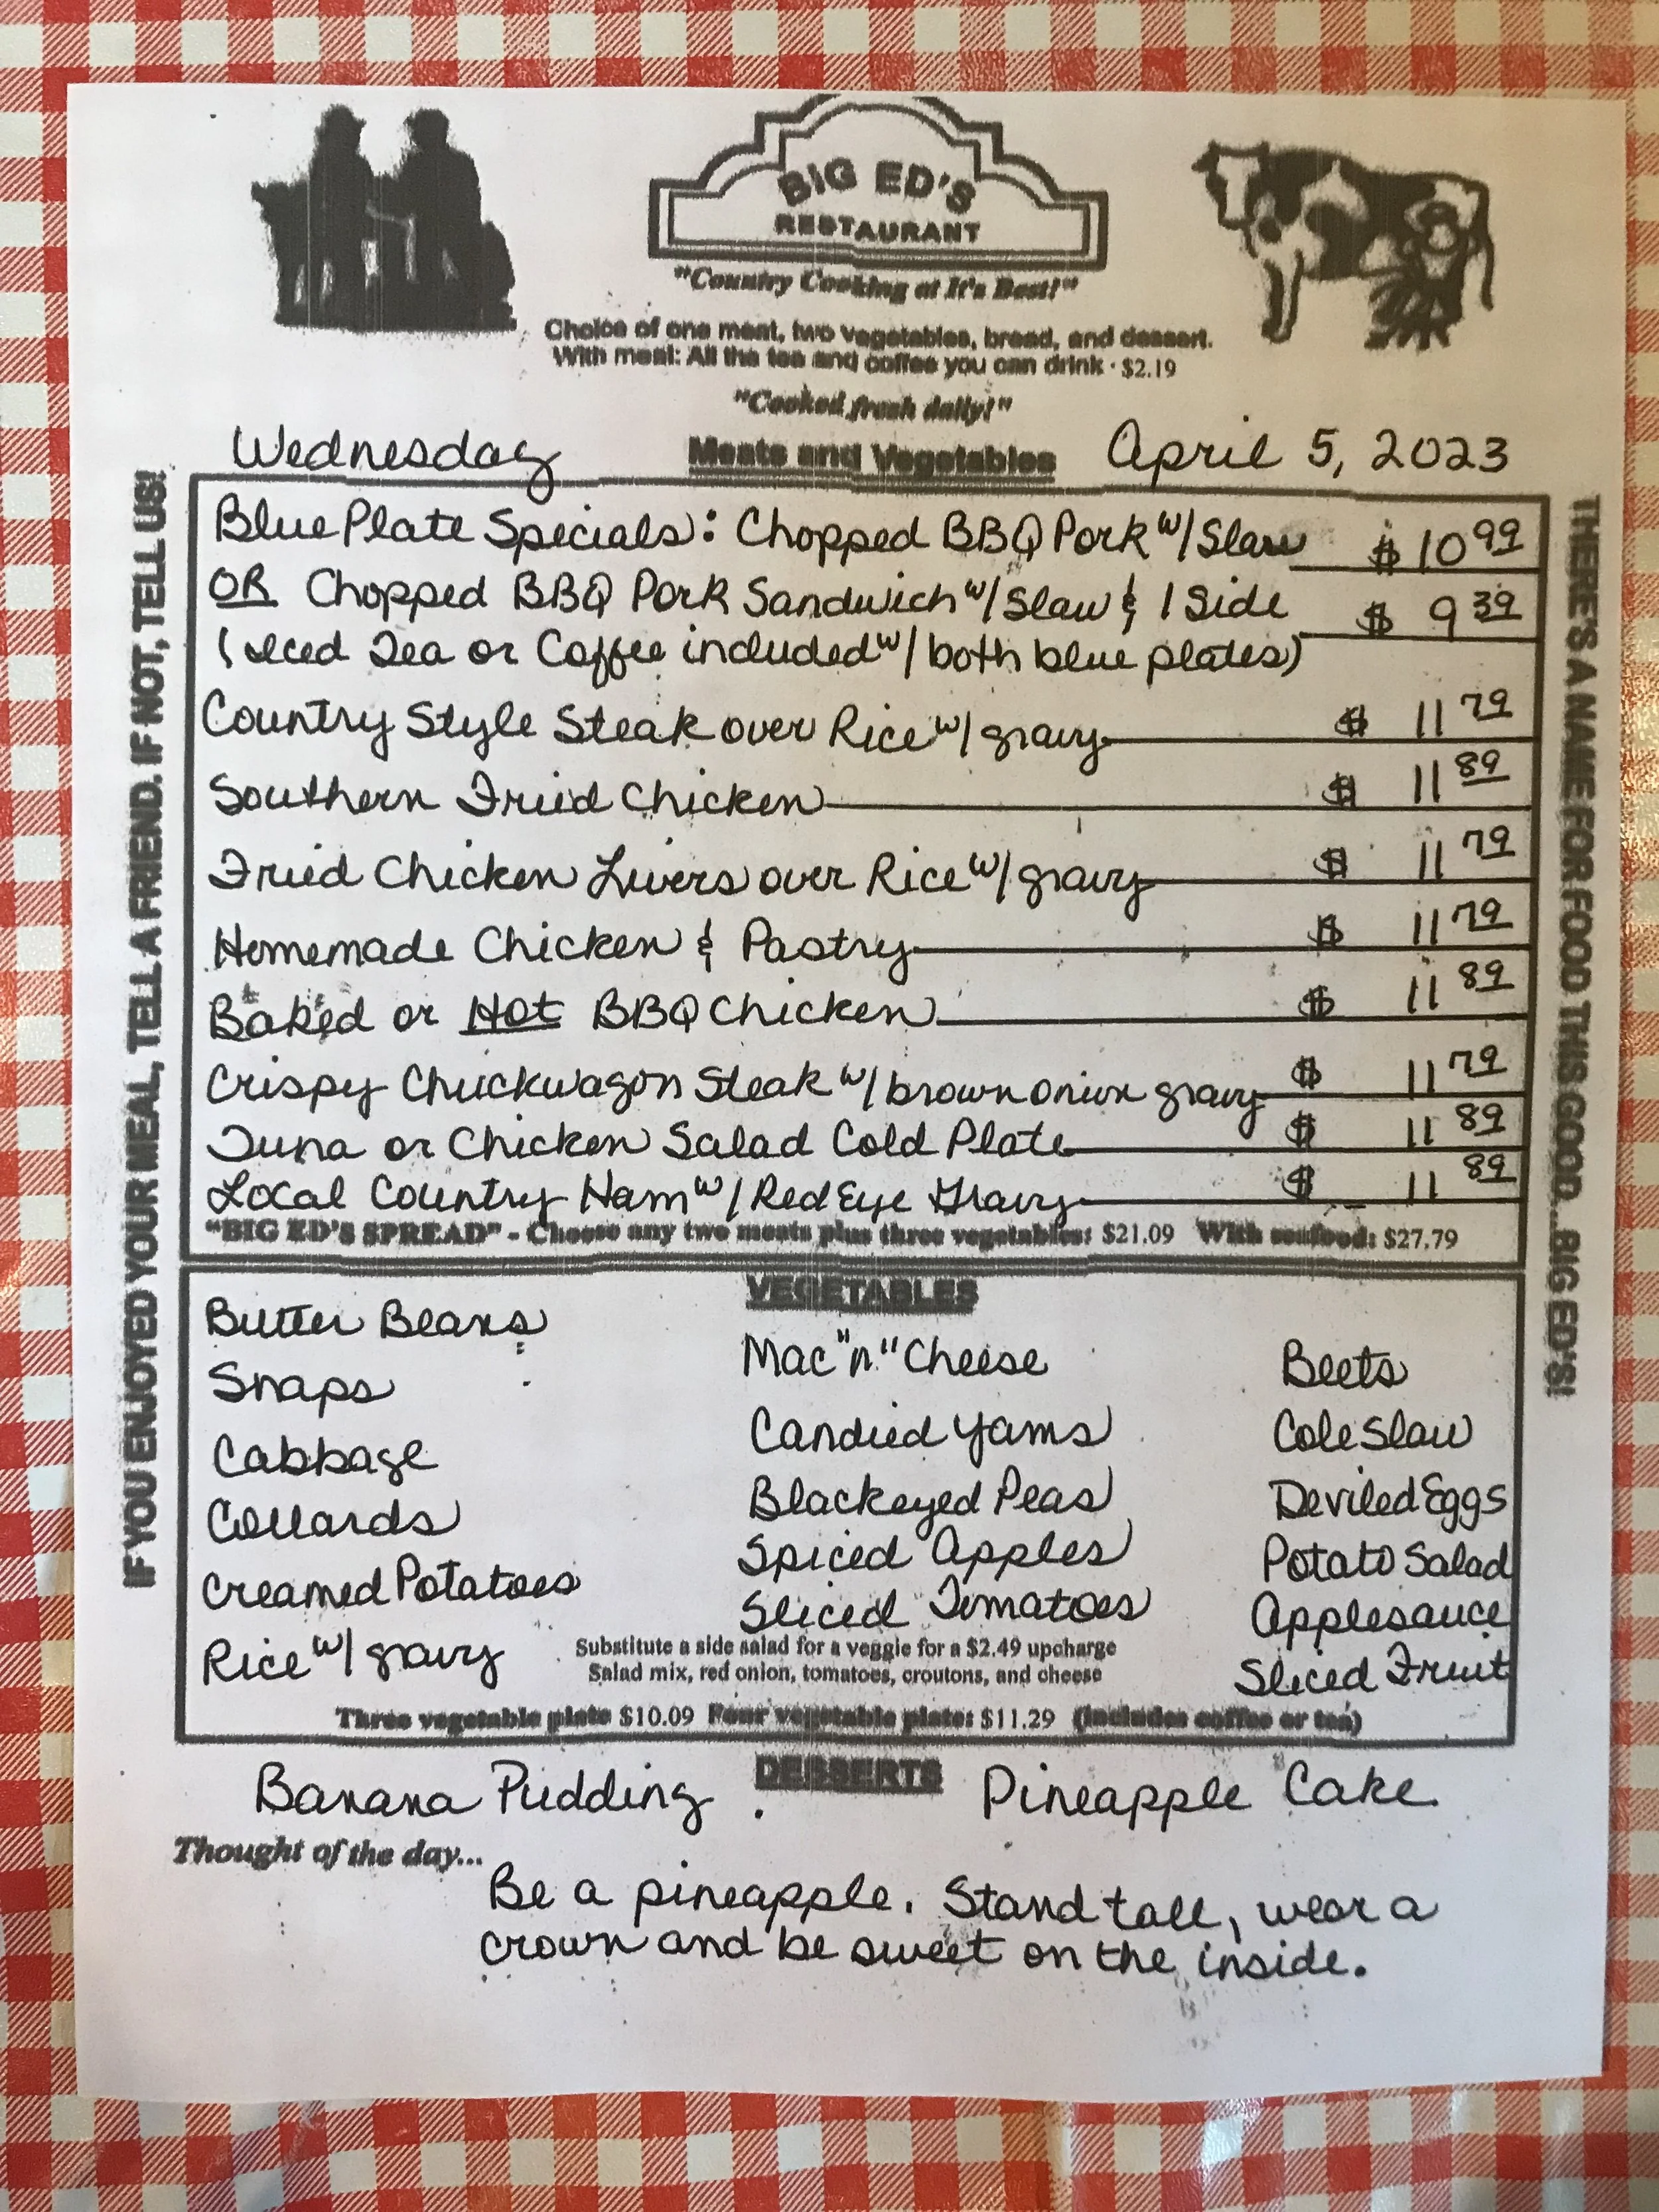 BIG ED'S
RESTAURANT
"Country Cooking at It's Best!"
Choice of one meat, two vegetables, bread, and dessert.
With meal: All the tea and coffee you can drink · $2.19
"Cooked fresh daily!"
Wednesday Meats and Vegetables April 5, 2023
IF YOU ENJOYED YOUR MEAL, TELL A FRIEND. IF NOT, TELL US!
Blue Plate Specials: Chopped BBQ Pork w/ Slaw $ 10 99
OR Chopped BBQ Pork Sandwich w/ Slaw & 1 Side $ 9 39
(Iced Tea or Coffee included w/ both blue plates)
Country Style Steak over Rice w/ gravy $ 11 79
Southern Fried Chicken $ 11 89
Fried Chicken Livers over Rice w/ gravy $ 11 79
Homemade Chicken & Pastry $ 11 79
Baked or Hot BBQ Chicken $ 11 89
Crispy Chuckwagon Steak w/ brown onion gravy $ 11 79
Tuna or Chicken Salad Cold Plate $ 11 89
Local Country Ham w/ Red Eye Gravy $ 11 89
"BIG ED'S SPREAD" - Choose any two meats plus three vegetables: $21.09 With seafood: $27.79
THERE'S A NAME FOR FOOD THIS GOOD...BIG ED'S!
VEGETABLES
Butter Beans
Snaps
Cabbage
Collards
Creamed Potatoes
Rice w/ gravy
Mac "n" Cheese
Candied Yams
Blackeyed Peas
Spiced Apples
Sliced Tomatoes
Beets
Cole Slaw
Deviled Eggs
Potato Salad
Applesauce
Sliced Fruit
Substitute a side salad for a veggie for a $2.49 upcharge
Salad mix, red onion, tomatoes, croutons, and cheese
Three vegetable plate $10.09 Four vegetable plate: $11.29 (includes coffee or tea)
DESSERTS
Banana Pudding Pineapple Cake
Thought of the day...
Be a pineapple. Stand tall, wear a
crown and be sweet on the inside.